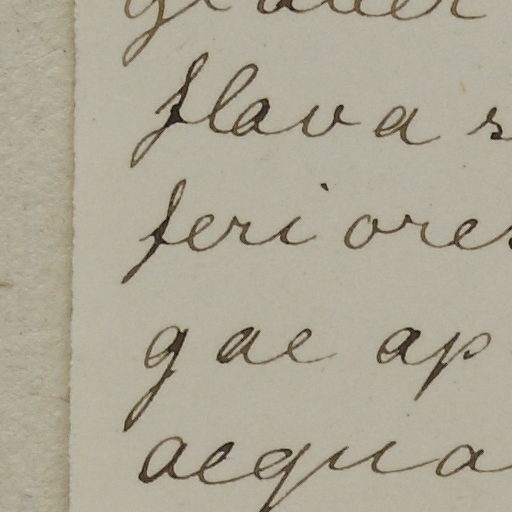 flava s
feriores
gae ap
aequa